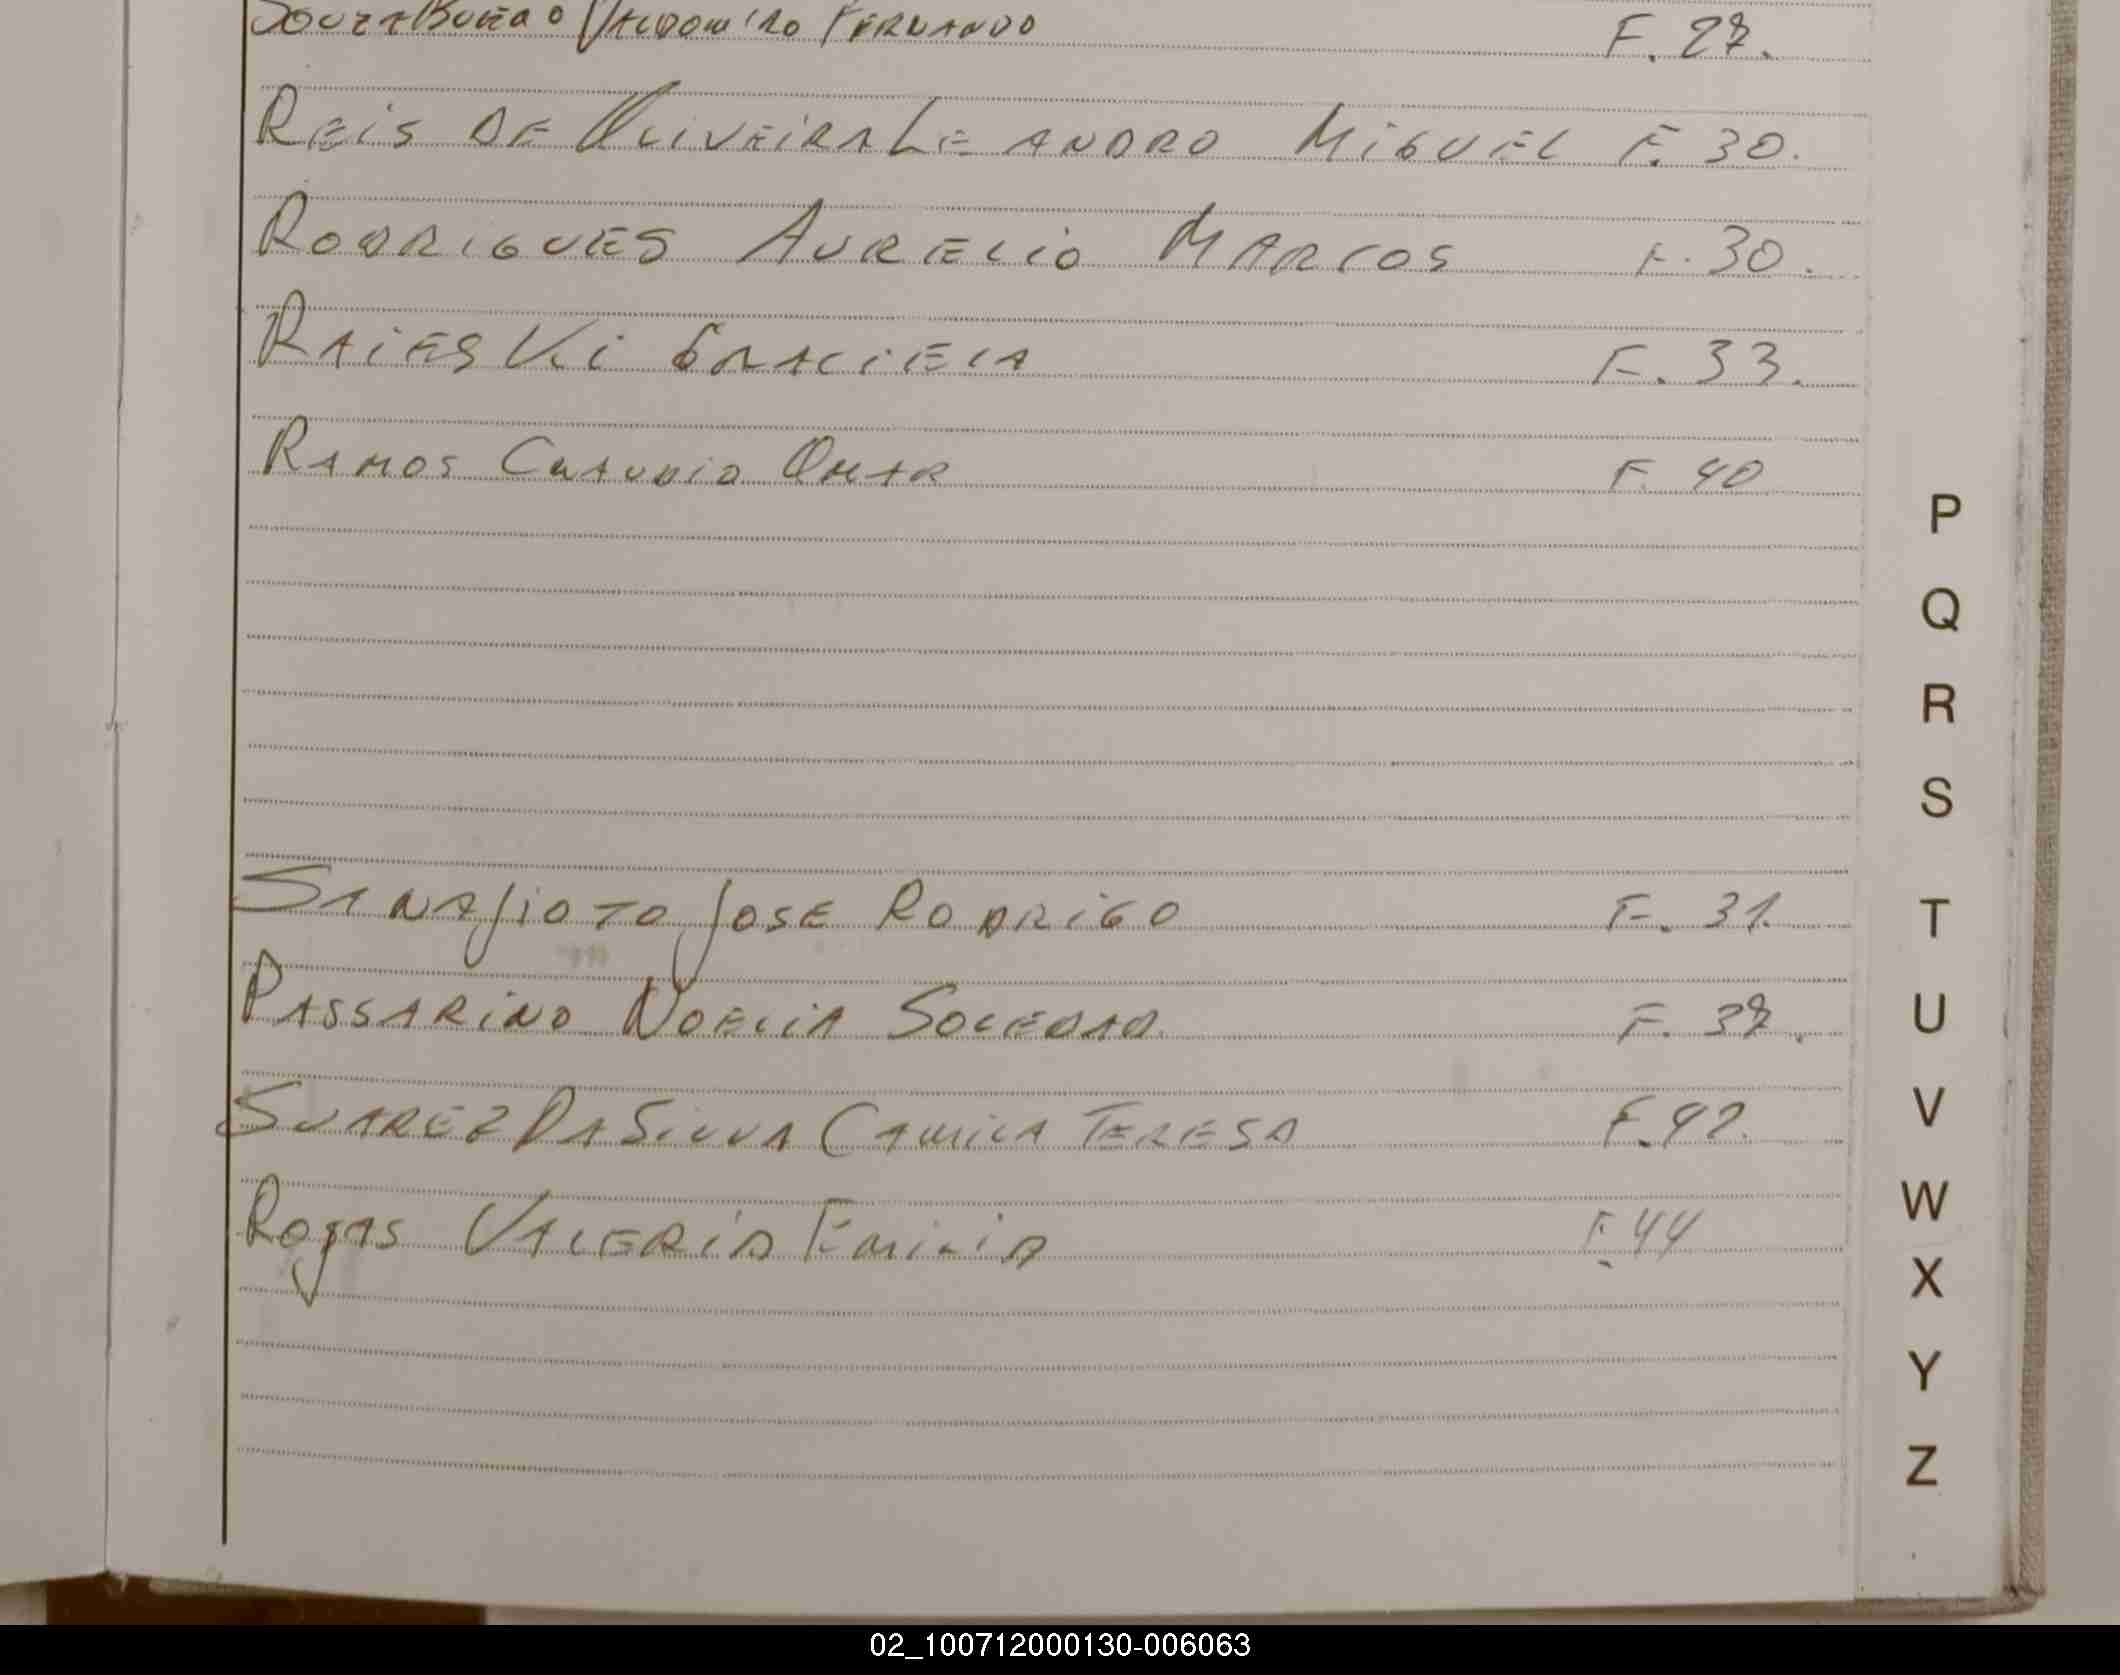 Souza Bueno Valdomiro Fernando F. 27.
Reis De Oliveira Leandro Miguel F. 30.
Rodrigues Aurelio Marcos F. 30.
Raieski Graciela F. 33.
Ramos Claudio Omar F. 40
P
Q
R
S
Sanajioto Jose Rodrigo F. 31.
T
Passarino Noelia Soledad. F. 37.
U
Suarez Da Silva Camila Teresa F. 42.
V
W
Rojas Valeria Emilia F. 44
X
Y
Z
02_100712000130-006063